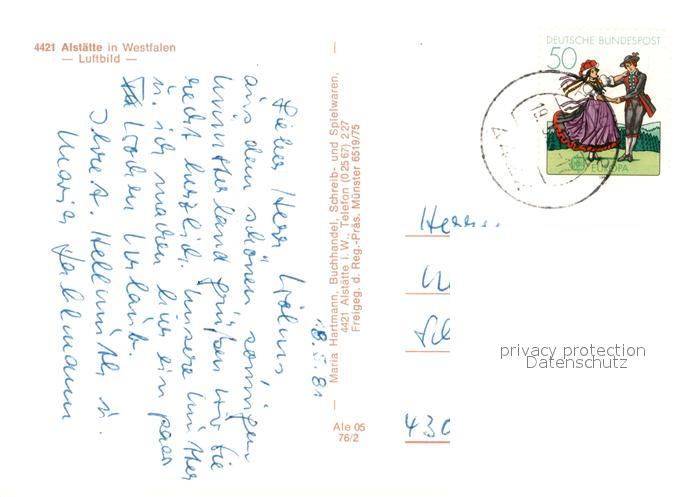 4421 Alstätte in Westfalen
— Luftbild —
18.5.81
Lieber Herr
aus dem schönen sonnigen
Münsterland grüßen wir Sie
recht herzlich. Unsere Mutter
u. ich machen hier ein paar
Wochen Urlaub.
Ihre H. Hellmuth u.
Maria
Maria Hartmann, Buchhandel, Schreib- und Spielwaren,
4421 Alstätte i. W., Telefon (0 25 67) 2 27
Freigeg. d. Reg.-Präs. Münster 6519/75
Ale 05
76/2
DEUTSCHE BUNDESPOST
50
EUROPA
Herrn
430
privacy protection
Datenschutz